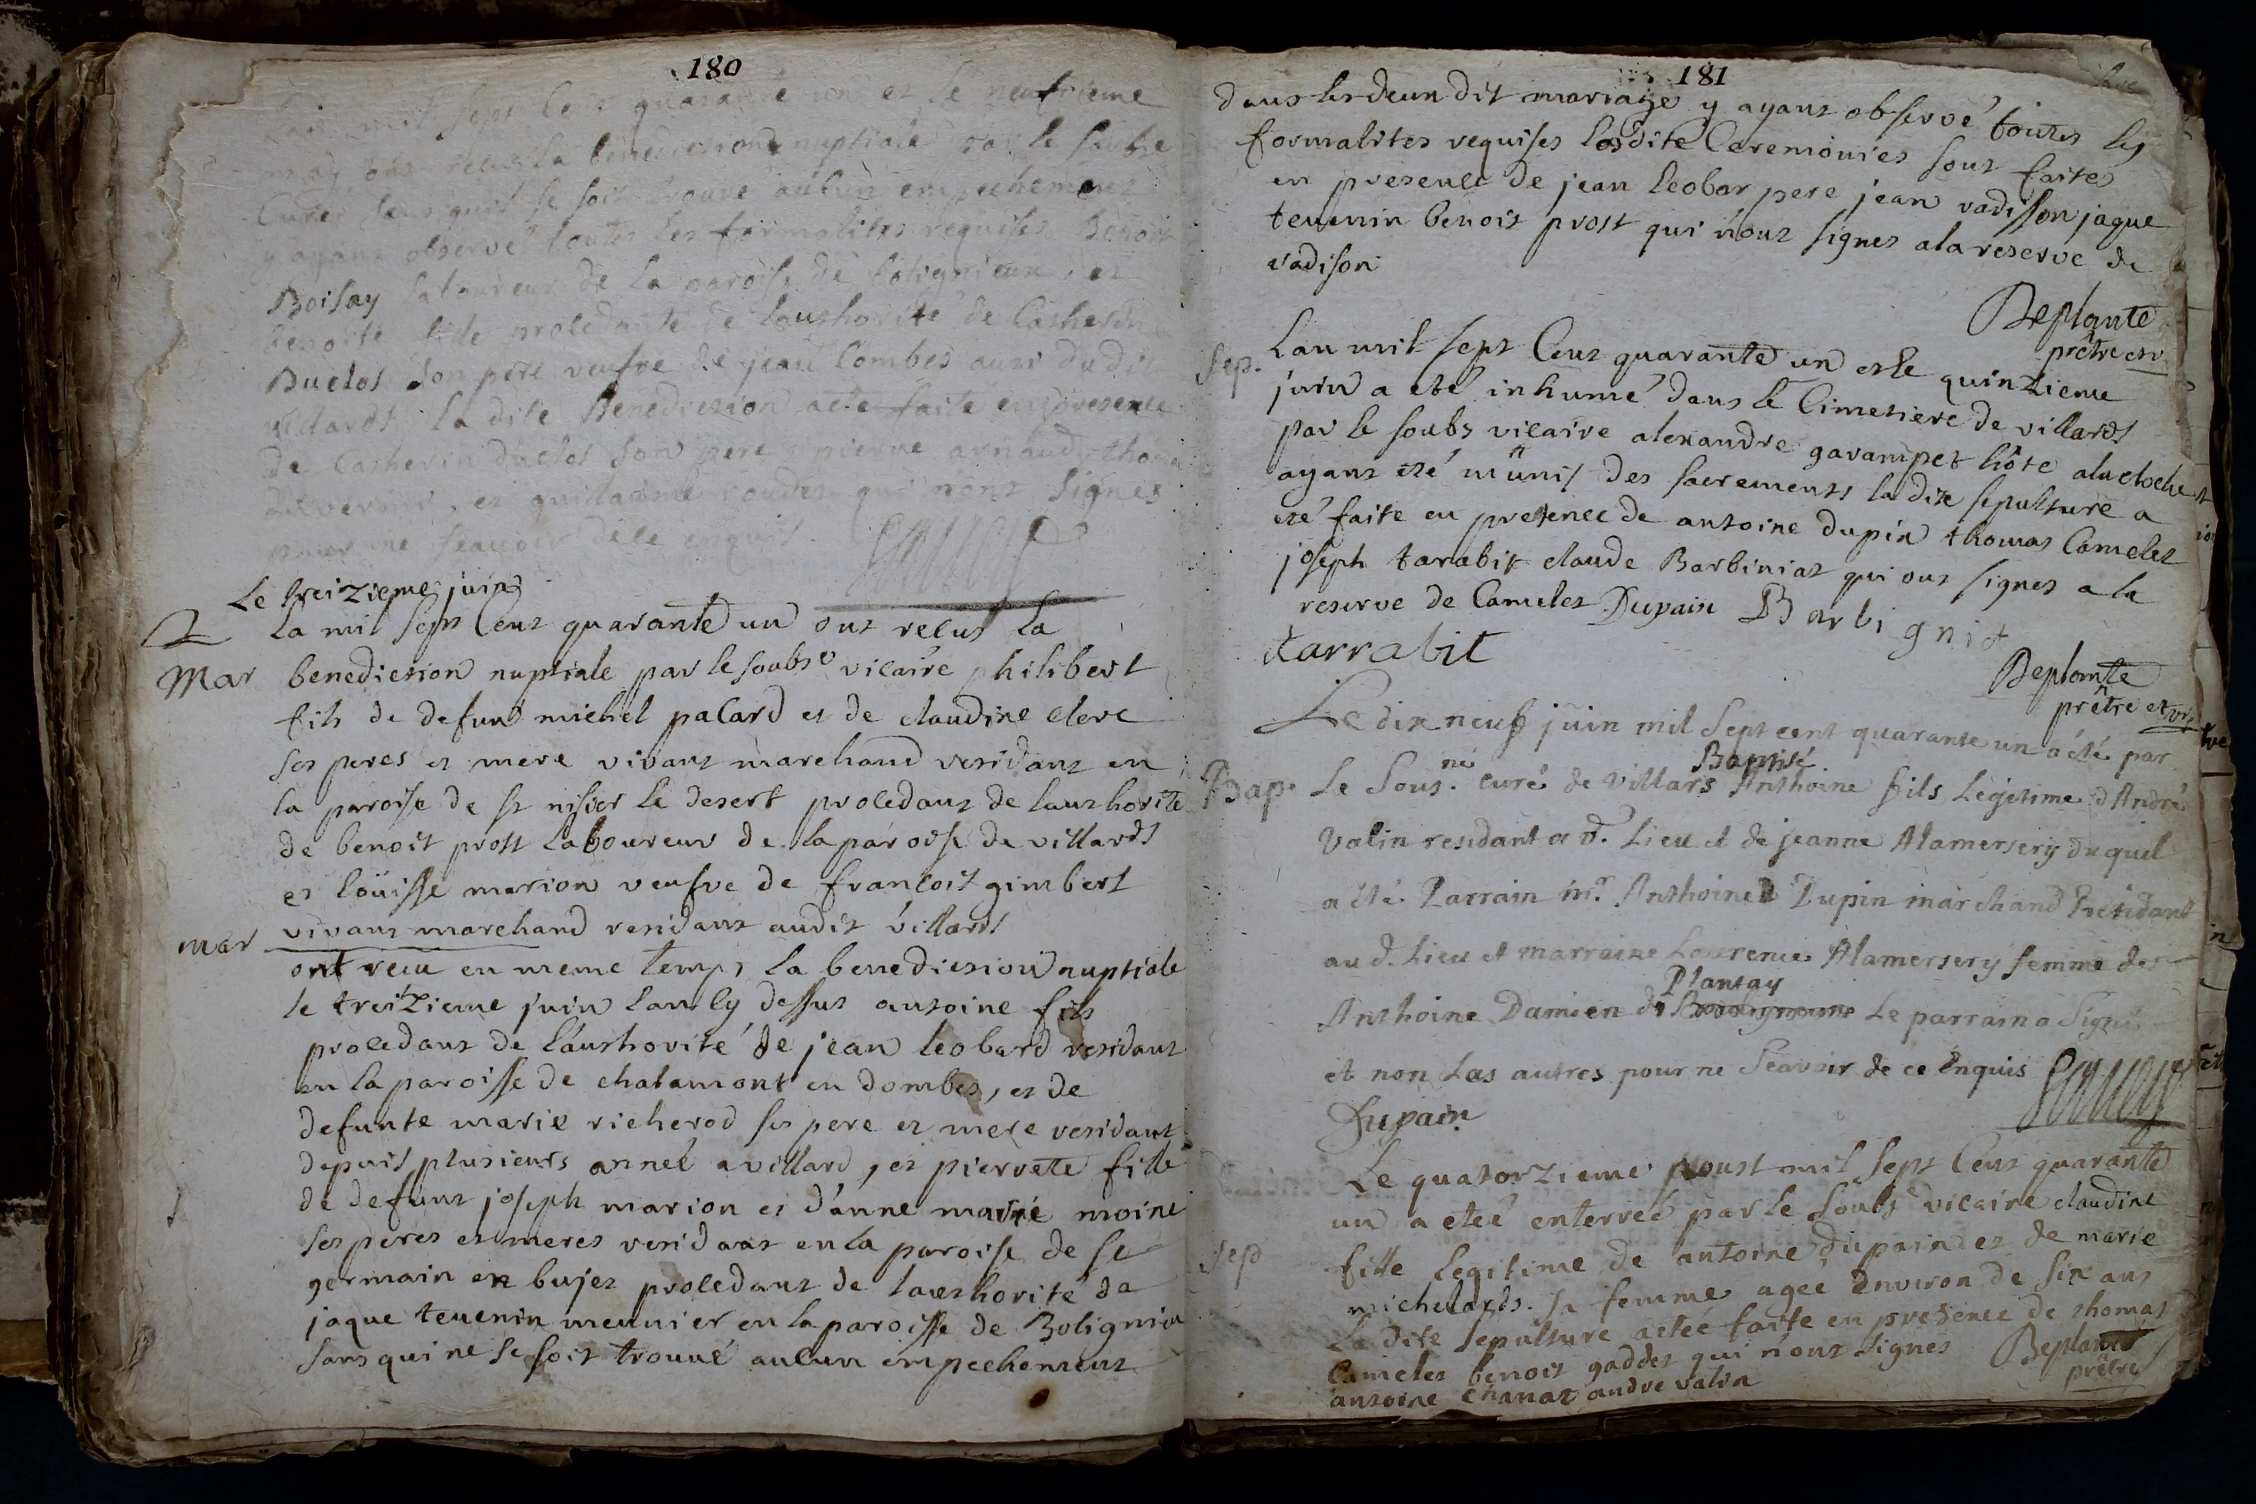 180
mil sept Cens quarante un et le neufvieme
may ont recus la benediction nuptiale par le soubsne
Curez sens quil se soit trouvé aucun empechement
y ayans observé toutes les formalites requises Benoit
Boisay laboureur de la paroisse de bolignieux, et
benoite fille procedante de lauthorité de Catherin
Duclos son pere veufve de jean Combes aussi dudit
villards la dite Benediction a eté faite en presence
de Catherin duclos son pere pierre arnaud thomas
et guillaume qui nont signes
pour ne scavoir de ce enquis
Le treizieme juin
La mil sept Cens quarante un ont recus la
Mar benediction nuptiale par le soubse vicaire philibert
fils de defunt michel paCard et de claudine clerc
ses peres et mere vivans marchand residant en
la paroise de st nisier le desert procedant de lauthorite
de benoit prost laboureur de la paroise de villards
et loüisse marion veufve de francois gimbert
vivans marchand residant audit villards
mar
ont recu en meme temps la benediction nuptiale
le treizieme juin lan cy dessus antoine fils
procedant de láuthorité de jean leobard residant
en la paroisse de chalamont en dombes, et de
defunte marie richerod ses pere et mere residant
depuis plusieurs anneé a villard, et pierrete fille
de defunt joseph marion et dánne marie moine
ses peres et meres residant en la paroise de st
germain en bujes procedant de lauthorité de
jaque tevenin meunier en la paroisse de Boligniou
sans qui ne se soit trouvé aucun empechement
181
dans lesdeun dit mariage y ayant observé toutes les
formalites requises lesdite Ceremonies sont faites
en presence de jean leobar pere jean vadisson jaque
tevenin benoit prost qui nont signes a la reserve de
vadison
Deplante
prêtre et v
Sep. Lan mil sept Cens quarante un et le quinzieme
juin a eté inhumé dans le Cimetiere de villards
par le soubs vicaire alexandre garampet hôte a la cloche
ayant eté munis des sacrements la dite sepulture a
eté faite en presence de antoine dupin thomas Camelet
joseph tarabit claude Barbiniat qui ont signes a la
reserve de Camelet Dupain Barbignit
tarrabit
Deplante
prêtre et vre
Le dix neuf juin mil Sept cent quarante un a été par
Baptisé
Bap. Le Sous.né curé de Villars Anthoine fils Legitime d'André
Valin residant a d. Lieu et de jeanne Alamersery duquel
a été Parrain mr. Anthoine Dupin marchand residant
au d. Lieu et marraine Laurence Alamersery femme de
Plantay
Anthoine Damien de Le parrain a Signé
et non Les autres pour ne Scavoir de ce Enquis
Dupain
Le quatorzieme Aoust mil sept Cens quarante
un a eteé enterreé par le Soubs vicaire claudine
Sep fille legitime de antoine dupain et de marie
michelards. sa femme ageé denviron de six ans
la dite sepulture a eteé faite en presence de thomas
Camelet benoit gaddet qui nont signes
antoine Chanat andre valin
Deplante
prêtre